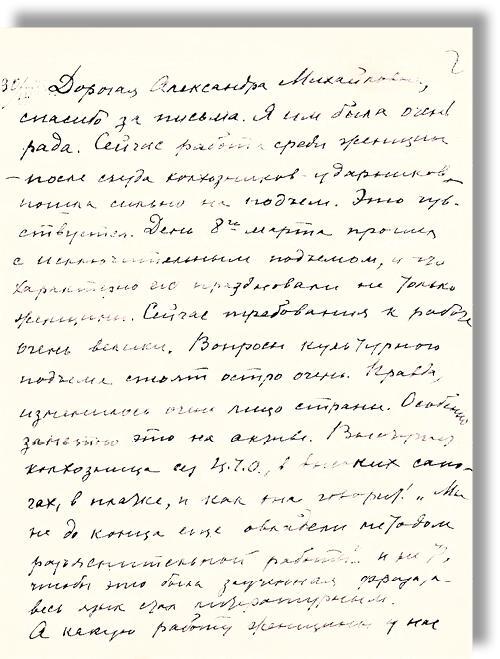 2
30/III Дорогая Александра Михайловна,
спасибо за письма. Я им была очень
рада. Сейчас работа среди женщин
– после съезда колхозников-ударников –
пошла сильно на подъем. Это чув-
ствуется. День 8го марта прошел
с исключительным подъемом, и что
характерно его праздновали не только
женщины. Сейчас требования к работе
очень велики. Вопросы культурного
подъема стоят остро очень. Правда,
изменилось очень лицо страны. Особенно
заметно это на активе. Выступает
колхозница из Ц.Ч.О., в высоких сапо-
гах, в платке, и как она говорит! „Мы
не до конца еще овладели методом
разъяснительной работы" и не то,
чтобы это была заученная фраза, а
весь язык стал литературным.
А какую работу женщины у нас